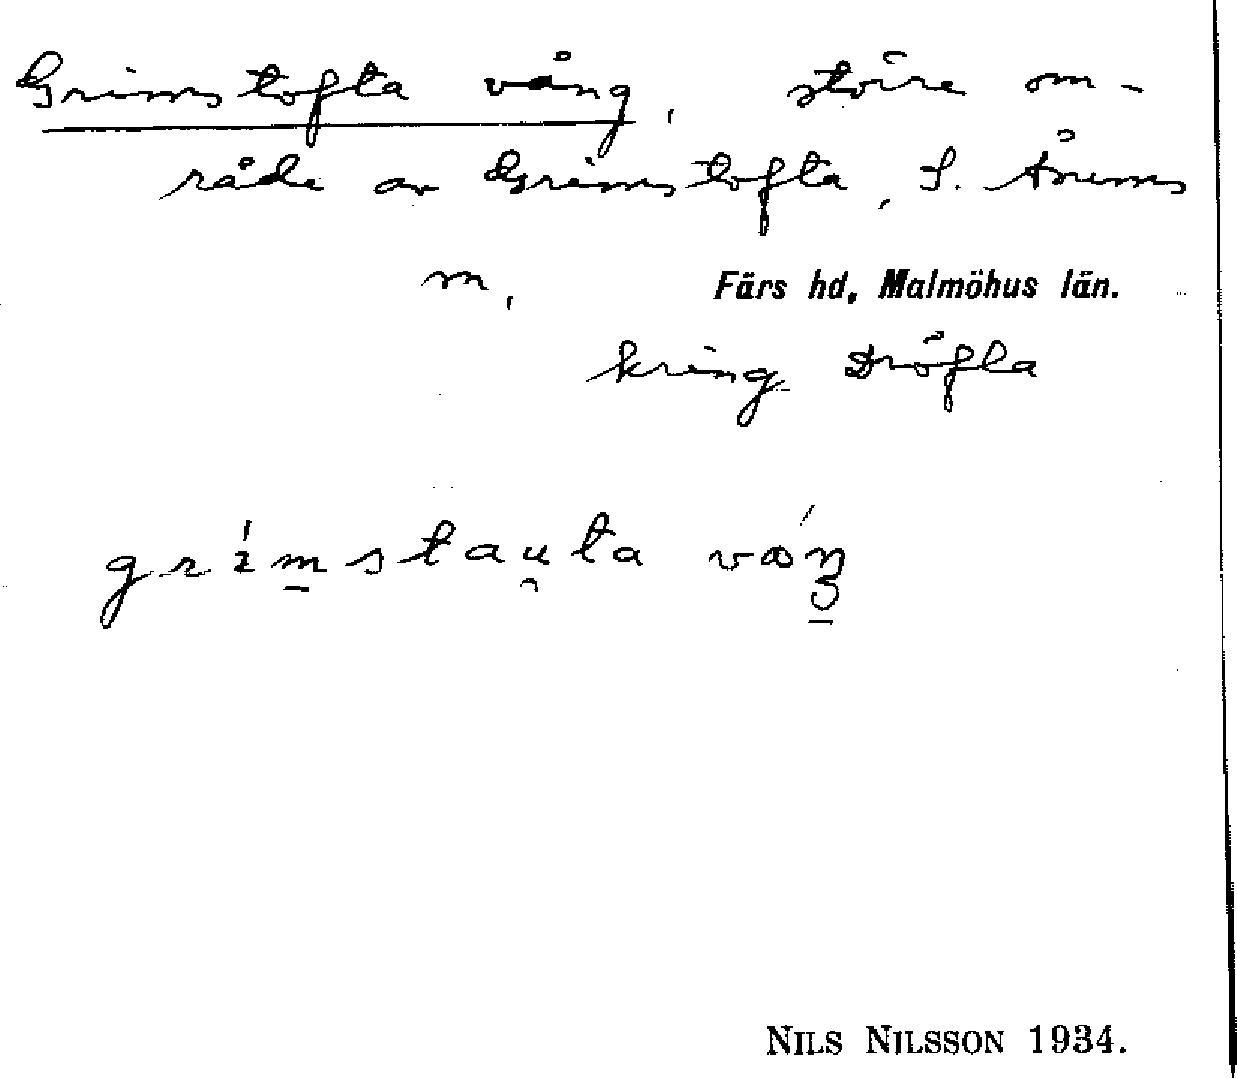 Grimstofta vång, större om-
råde av Grimstofta, S. Åsums
m,
Färs hd, Malmöhus län.
kring Dröfla
vǻŋ
NILS NILSSON 1934.